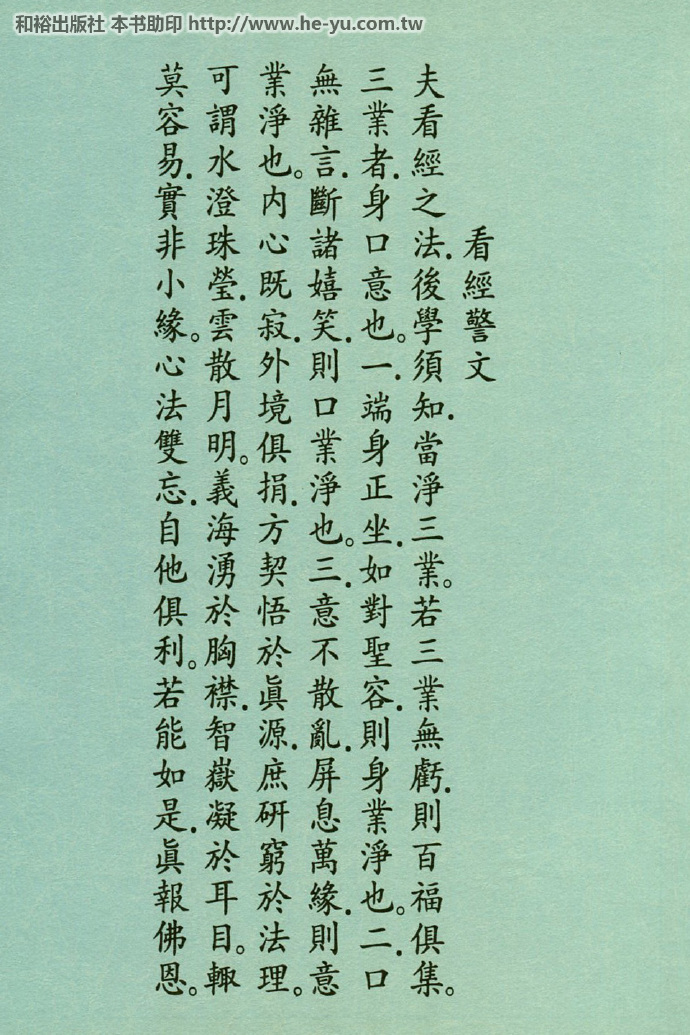 和裕出版社 本书助印 http://www.he-yu.com.tw
看經警文
夫看經之法．後學須知．當淨三業。若三業無虧．則百福俱集。
三業者．身口意也。一．端身正坐．如對聖容．則身業淨也。二．口
無雜言．斷諸嬉笑．則口業淨也。三．意不散亂．屏息萬緣．則意
業淨也。内心既寂．外境俱捐．方契悟於眞源．庶研窮於法理。
可謂水澄珠瑩．雲散月明。義海湧於胸襟．智嶽凝於耳目。輙
莫容易．實非小緣。心法雙忘．自他俱利。若能如是．眞報佛恩。